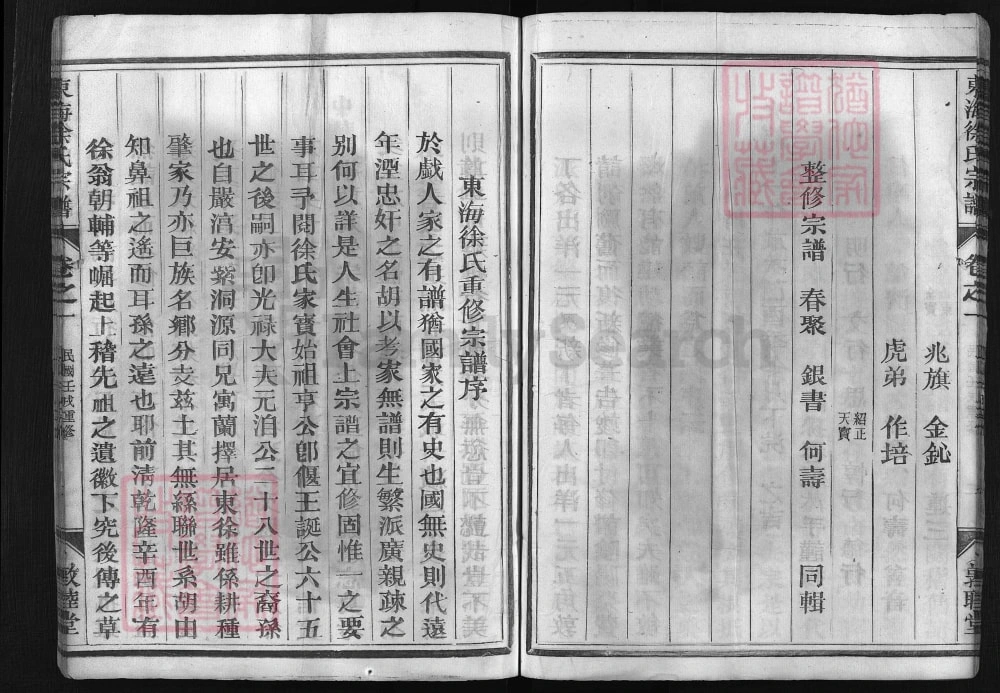 東海徐氏宗譜 卷之一
兆旗 金鈊
虎弟 作培
紹正
天寶
整修宗譜 春聚 銀書 何壽 同輯
東海徐氏重修宗譜序
於戲人家之有譜猶國家之有史也國無史則代遠
年湮忠奸之名胡以考家無譜則生繁派廣親疎之
別何以詳是人生社會上宗譜之宜修固惟一之要
事耳予閱徐氏家寶始祖亨公卽偃王誕公六十五
世之後嗣亦卽光祿大夫元洎公二十八世之裔孫
也自嚴滈安紫洞源同兄寓蘭擇居東徐雖係耕種
肇家乃亦巨族名鄉分支兹土其無綜聯世系胡由
知鼻祖之遙而耳孫之遠也耶前清乾隆辛酉年有
徐翁朝輔等崛起上稽先祖之遺徽下究後傳之草
東海徐氏宗譜 卷之一 民國壬戌重修 敦睦堂